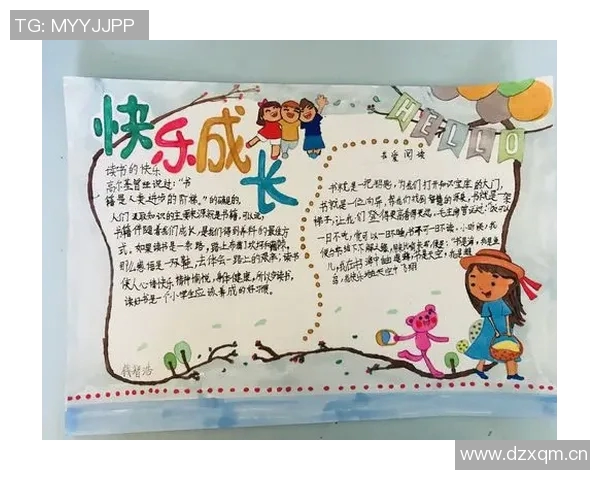 TG: MYYJJPP
快乐成长
HELLO
读书的快乐
高尔基曾经说过:“书
籍是人类进步的阶梯。”的确是的,
人们汲取知识的主要来源就是书籍,可以说,
书籍伴随着我们成长,是我们得到养料的最佳方
式。如果读书是一条路,路上布满了坎坷和荆棘,
那么
读书
使人心情快乐,精神愉悦,身体健康,所以多读书,
读好书是一个小学生应该养成的好习惯。
书 爱 阅 读
书就是一把钥匙,为我们打开知识宝库的大门,
书就是一位向导,带我们找到智慧的源泉,书就是一架
梯子,让我们登得更高看得更远,毛主席曾说过:“饭可以
一日不吃,觉可以一日不睡,书不可一日不读,
钱智浩
www.dzxqm.cn